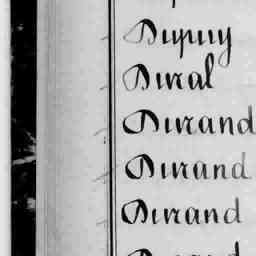 Dupuy
Dural
Durand
Durand
Durand